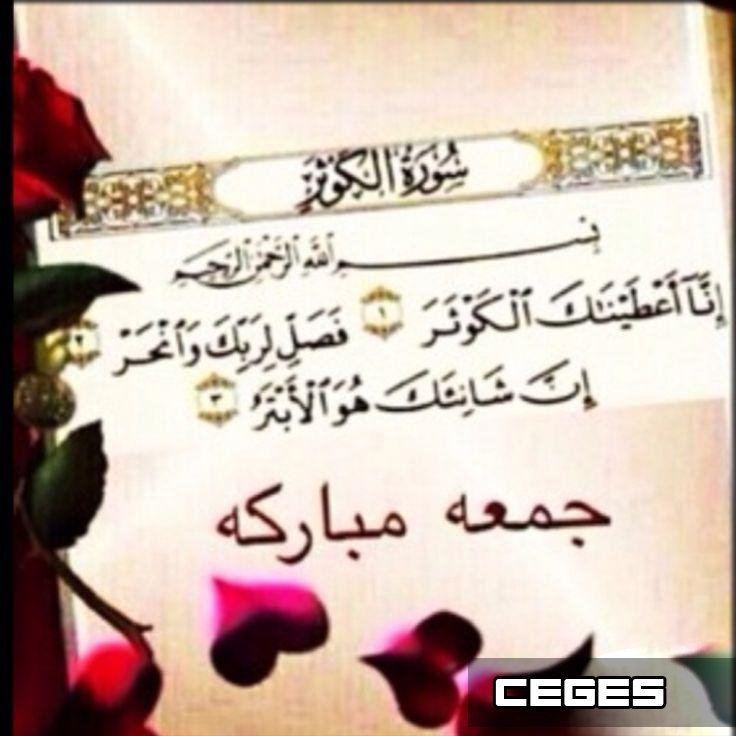 سُورَةُ الكَوْثَرِ
بِسْمِ اللَّهِ الرَّحْمَٰنِ الرَّحِيمِ
إِنَّآ أَعْطَيْنَٰكَ ٱلْكَوْثَرَ ١ فَصَلِّ لِرَبِّكَ وَٱنْحَرْ ٢
إِنَّ شَانِئَكَ هُوَ ٱلْأَبْتَرُ ٣
جمعه مباركه
CEGES